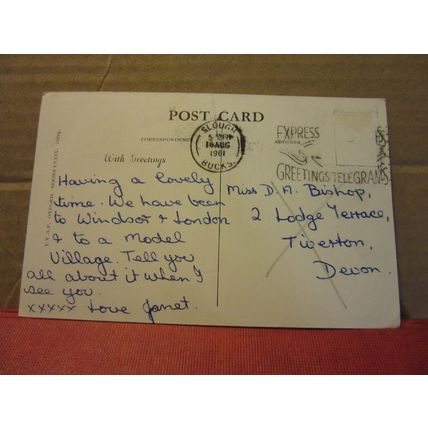 POST CARD
CORRESPONDENCE
ADDRESS
With Greetings
SLOUGH
10 AUG
1961
BUCKS.
EXPRESS
GREETINGS TELEGRAMS
Having a lovely
time. We have been
to Windsor & London
& to a Model
Village. Tell you
all about it when I
see you.
xxxxx Love Janet.
Miss D. A. Bishop,
2 Lodge Terrace,
Tiverton,
Devon.